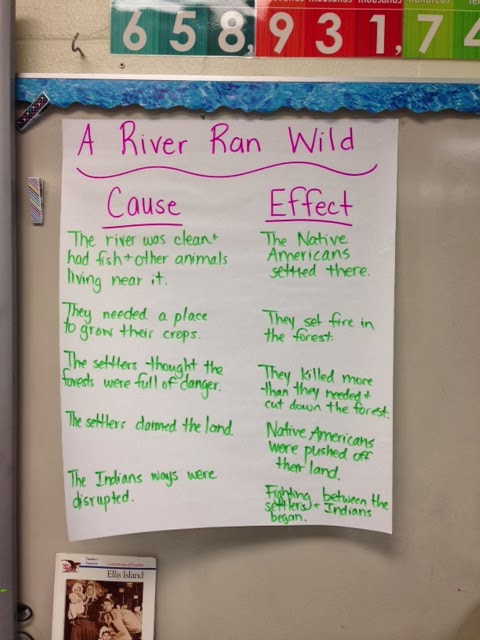 658,931,74
A River Ran Wild
Cause
Effect
The river was clean +
had fish + other animals
living near it.
The Native
Americans
settled there.
They needed a place
to grow their crops.
They set fire in
the forest.
The settlers thought the
forests were full of danger.
They killed more
than they needed +
cut down the forest.
The settlers claimed the land.
Native Americans
were pushed off
their land.
The Indians ways were
disrupted.
Fighting between the
settlers + Indians
began.
Ellis Island